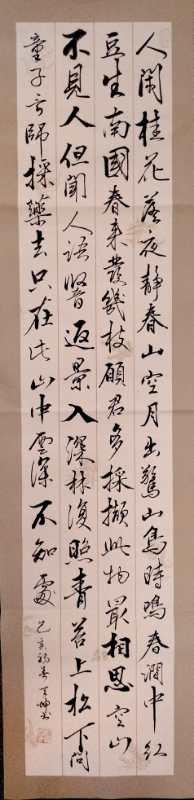 人閑桂花落夜靜春山空月出驚山鳥時鳴春澗中紅
豆生南國春來發幾枝願君多採擷此物最相思空山
不見人但聞人語響返景入深林復照青苔上松下問
童子言師採藥去只在此山中雲深不知處
己亥